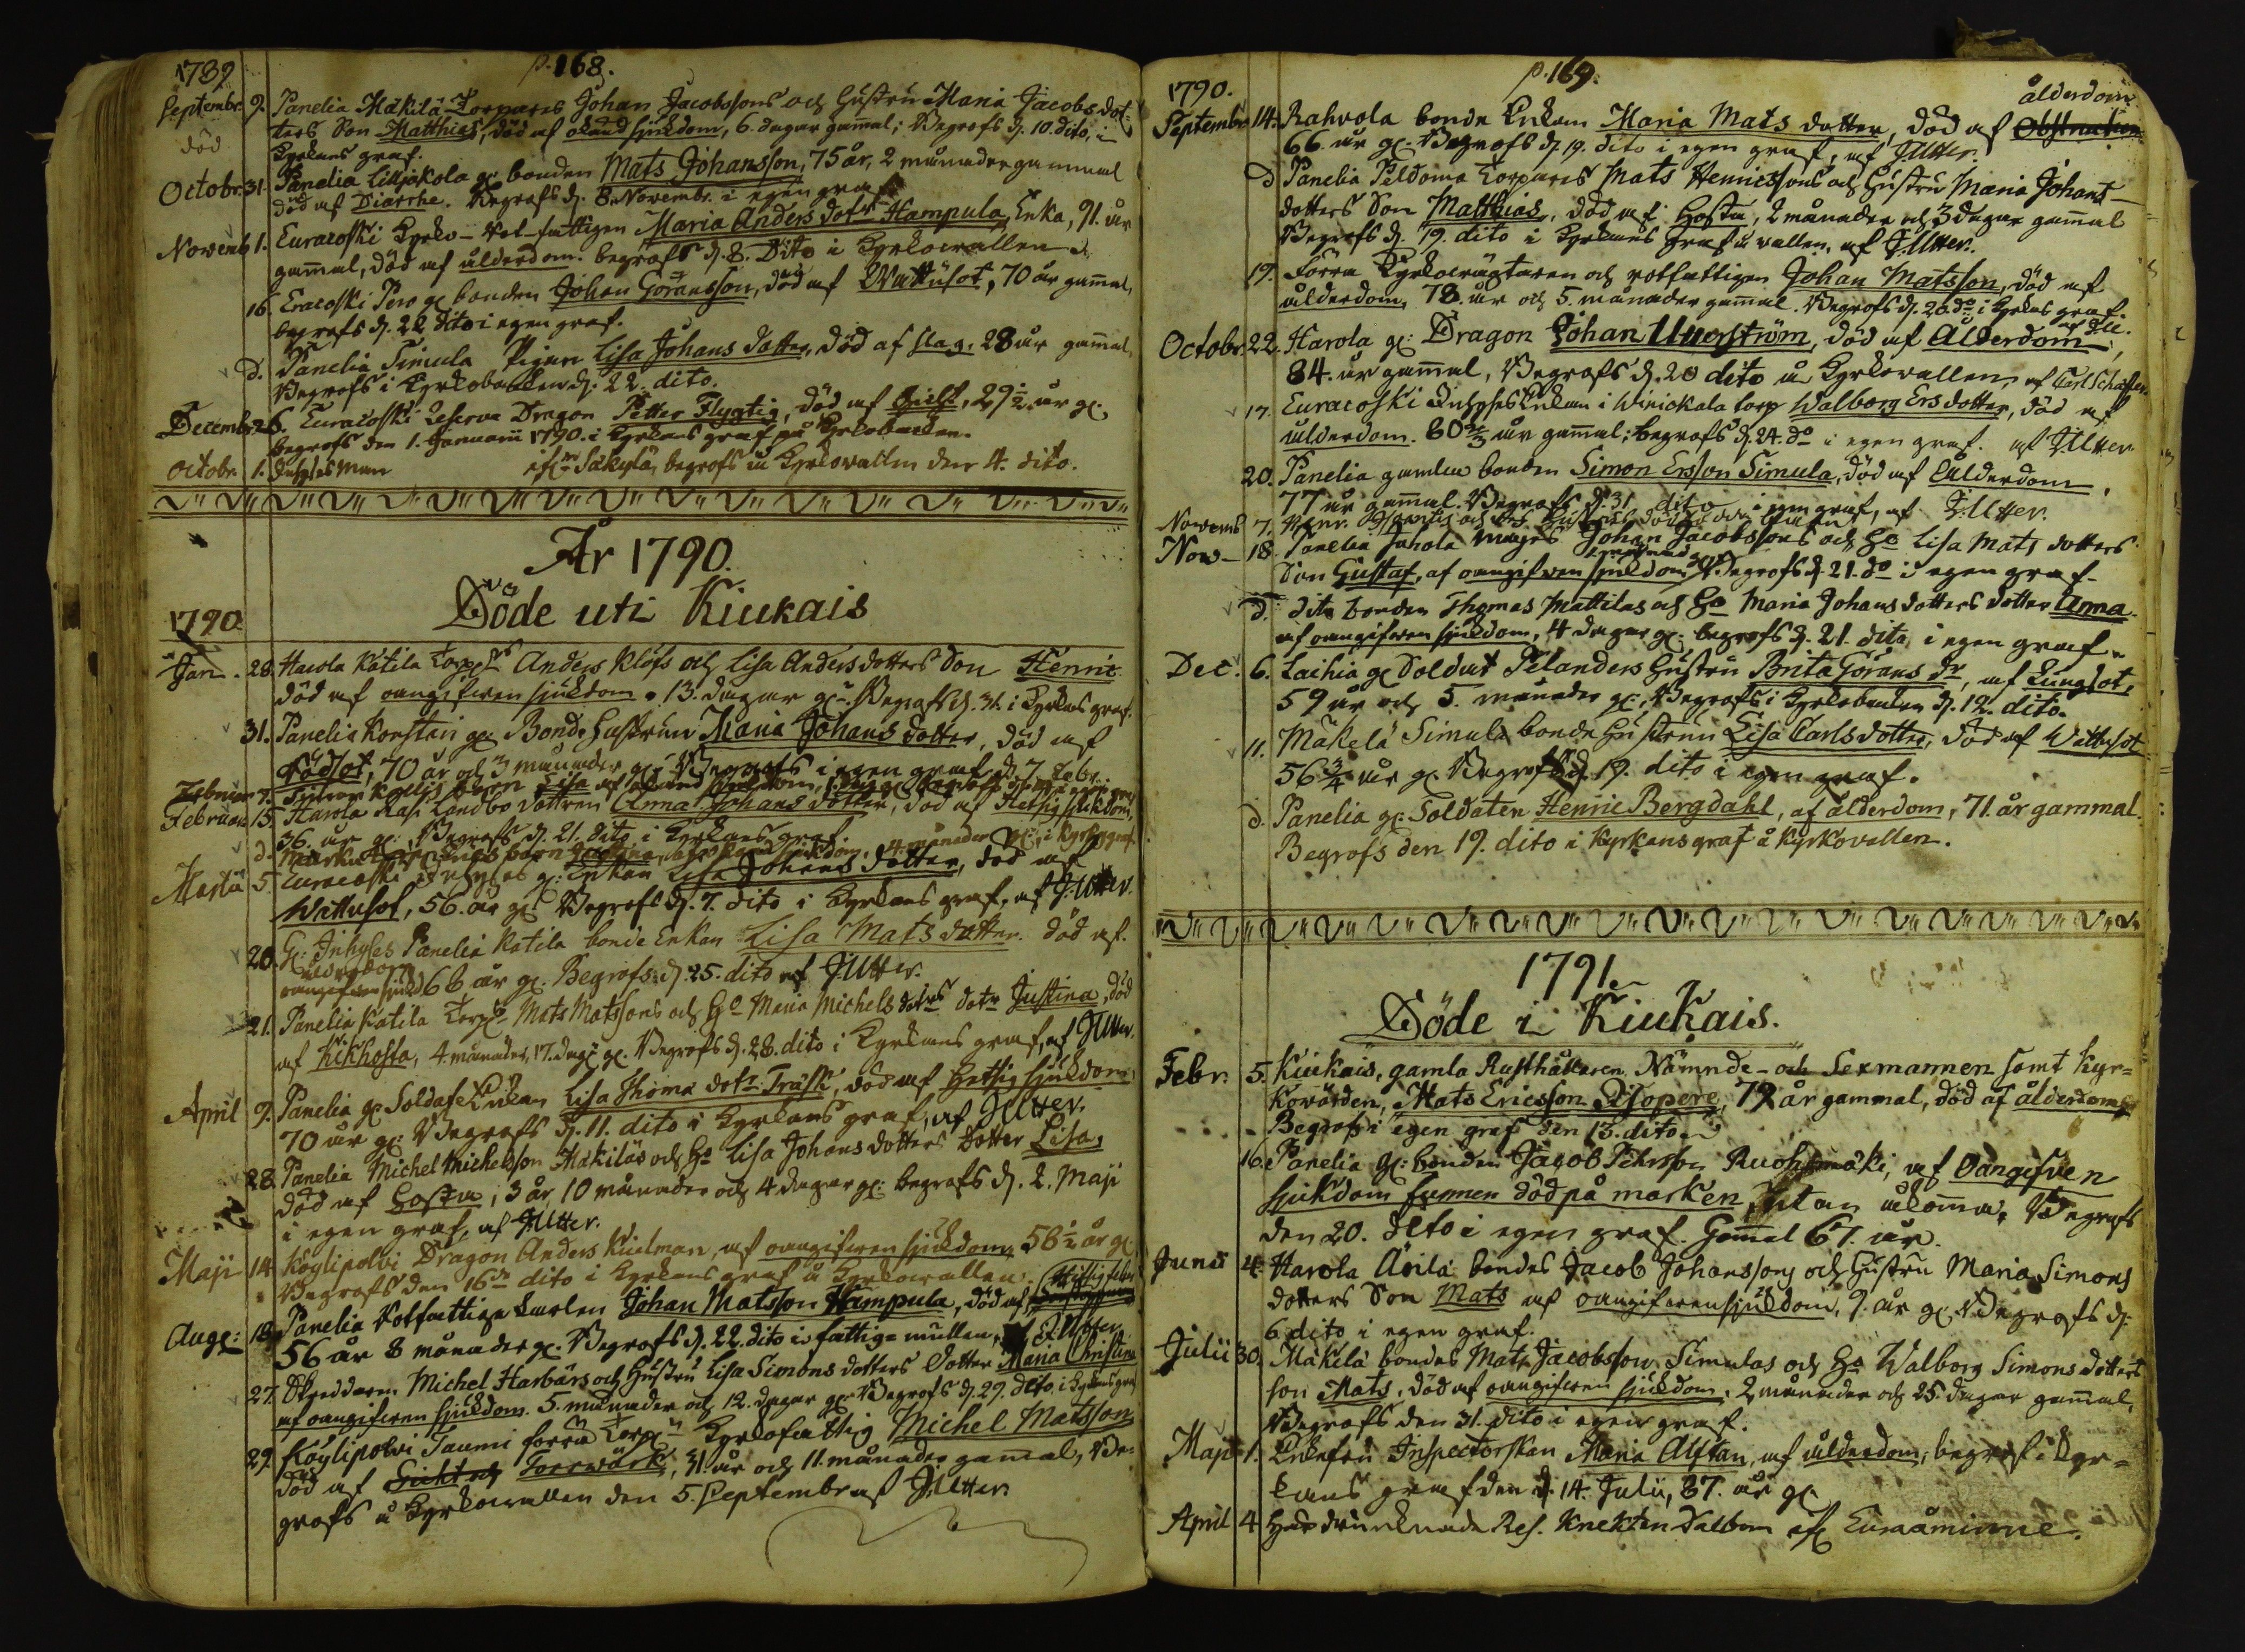 p. 168.
1789
Septembr. 9. Panelia Mäkilä Torpares Johan Jacobssons och Hustru Maria Jacobs dot-
död ters Son Matthias, död af okänd sjukdom, 6. dagar gamal; Begrofs d. 10. dito, i
Kyrkans graf.
Octobr. 31. Panelia Lilljakola gl. bonden Mats Johansson, 75 år, 2 månader gammal
död af Diarrhe. Begrofs d. 8. Novembr. i egen graf
Novemb. 1. Euracoski Kyrko- Rot-fattigen Maria Anders dotr Hampula, Enka, 91. år
gamal, död af ålderdom. begrofs d. 8. Dito i Kyrkowallen
16. Eracoski Pero gl bonden Johan Göransson, död af Wattusot, 70 år gamal,
begrofs d. 22 dito i egen graf.
d. Panelia Simula Pigan Lisa Johans dotter, död af slag. 28 år gamal
Begrofs i Kyrkobacken d: 22. dito.
Decembr. 26. Euracoski Reserve Dragon Petter Flygtig, död af Gickt, 29 1/2 år gl.
begrofs den 1. Januarii 1790. i Kyrkans graf på Kyrkobacken.
Octobr. 1. Inhyses Man ifrn Säkylä, begrofs i Kyrkowallen den 4. dito.
År 1790.
Döde uti Kiukais
1790
Jan. 28. Harola Katila Torp. Anders Klöfs och Lisa Anders dotters Son Henric
död af oangifwen sjukdom. 13. dagar gl. Begrofs d. 31. i Kyrkans graf.
31. Panelia Konstari gl. Bonde Hustrun Maria Johans dotter, död af
Rödsot, 70 år och 3 månader gl. Begrofs i egen graf d. 7. Febr.
Februar. 7. barn Lisa af
Februari 13. Harola Rasi Landbo dottren Anna Johans dotter, död af Hetsig sjukdom,
36. år gl. Begrofs d. 21. dito i Kyrkans graf.
d. barn 4 månader gl.
Martii 5. Euracoski Inhyses gl: Enkan Lisa Johans dotter, död af
Wattusot, 56. år gl. Begrofs d. 7. dito i Kyrkans graf, af J. Utter.
20. Gl: Inhyses Panelia Katila bonde Enkan Lisa Mats dotter. död af.
ålderdom
oangifwen sjukd 68 år gl. Begrofs. d. 25. dito af J. Utter.
21. Panelia Katila Torp. Mats Matssons och Ho Maria Michels dotrs dotr Justina, död
af Kikhosta, 4 månader, 17. dagr gl. Begrofs d. 28. dito i Kyrkans graf, af J Utter.
April 9. Panelia gl Soldate Enkan Lisa Thoma dotr. Träsk, död af Hettig sjukdom,
70 år gl: Begrofs d. 11. dito i Kyrkans graf, af J Utter.
28. Panelia Michel Michelsson Mäkiläs och Ho Lisa Johans dotters dotter Lisa,
död af Hosta, 3 år, 10 månader och 4 dagar gl: begrofs d. 2. Maji
i egen graf, af J Utter.
Maji 14 Köylipolvi Dragon Anders Kuelman, af oangifwen sjukdom 58 1/2 år gl.
Begrofs den 16 dito i Kyrkans graf å Kyrkowallen.
Aug: 18. Panelia Rotfattige karlen Johan Matsson Hampula, död af, Hettig feber
56 år 8 månader gl. Begrofs d. 22. dito i fattig-mullen, af J. Utter
27. Skreddaren Michel Harbårs och Hustru Lisa Simons dotters Dotter Maria Christina
af oangifwen sjukdom. 5. månader och 12. dagar gl. Begrofs d. 29. dito, i Kyrkans graf
29. Köylipolvi Tuomi förra Torp. Kyrkofattig Michel Matsson
död af Gickt och Torrwärk, 31. år och 11. månader gamal, Be-
grofs å Kyrkowallen den 5. Septembr af J: Utter
p. 169.
1790.
ålderdom
Septembr. 14. Rahvola bonde Enkan Maria Mats dotter, död af Obstruction
66. år gl. Begrofs d. 19. dito i egen graf, af J Utter.
d Panelia Peldoma Torpares Mats Henricssons och Hustru Maria Johans-
dotters Son Matthias, död af Hosta, 2 månader och 3 dagar gamal
Begrofs d. 19. dito i Kyrkans graf å vallen, af J Utter.
19. Förra Kyrkowägtaren och rotfattigen Johan Matsson, död af
ålderdom, 78. år och 5. månader gamal. Begrofs d. 26. do i Kyrkas graf.
Octobr. 22. Harola gl: Dragon Johan Uuerström, död af Ålderdom,
84. år gamal, Begrofs d. 20 dito å Kyrkowallen, af Carl
17. Euracoski Inhyses Enkan i Winickala torp Walborg Ersdotter, död af
ålderdom. 60 2/3 år gamal; begrofs d. 24. do i egen graf. af J Utter
20. Panelia gamla bonden Simon Ersson Simula, död af Ålderdom.
77 år gamal. Begrofs d. 31. dito i egen graf, af J: Utter.
Novemb. 7.
Nov- 18. Panelia Juhola måges Johan Jacobssons och Ho Lisa Mats dotters
Son Gustaf, af oangifwen sjukdom, Begrofs d. 21. do i egen graf.
d. dito bonden Thomas Mattilas och Ho Maria Johans dotters dotter Anna
af oangifwen sjukdom, 4 dagar gl. begrofs d. 21. dito i egen graf.
Dec. 6. Laihia gl Soldat Telanders Hustru Brita Görans dr, af Lungsot,
59 år och 5. månader gl. Begrofs i Kyrkobacken d. 12. dito.
11. Mäkelä Simula bonde Hustrun Lisa Carls dotter, död af Wattusot
56 3/4 år gl. Begrofs d. 19. dito i egen graf.
d. Panelia gl: Soldaten Henric Bergdahl, af ålderdom, 71. år gammal.
Begrofs den 19. dito i Kyrkans graf å Kyrkovallen.
1791.
Döde i Kiukais.
Febr. 5. Kiukais, gamla Rusthållaren, Nämnde- och Sexmannen samt Kyr-
kovärden, Mats Ericsson Pisopere, 79 år gammal, död af ålderdom
Begrofs i egen graf den 13. dito.
16. Panelia gl: bonden Jacob Pehrsson Ruohomäki, af Oangifven
sjukdom funnen död på marken utan åkoma, Begrofs
den 20. dito i egen graf. Gamal 67. år.
Junii 4. Harola Äöilä bondes Jacob Johanssons och Hustru Maria Simons
dotters Son Mats af oangifwen sjukdom, 9. år gl. Begrofs d.
6 dito i egen graf.
Julii 30. Mäkilä bondes Mats Jacobsson Simulas och Ho Walborg Simons dotters
son Mats, död af oangifwen sjukdom, 2 månader och 25. dagar gamal.
Begrofs den 31. dito i egen graf.
Maji 1. Enkefru Inspectorskan Maria Alftan, af ålderdom, begrofs i Kyr-
kans graf den d. 14. Julii, 87. år gl.
April 4 drunknade Res. Knekten Dalbom if Euraåminne.